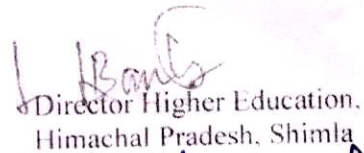 Director Higher Education,
Himachal Pradesh, Shimla